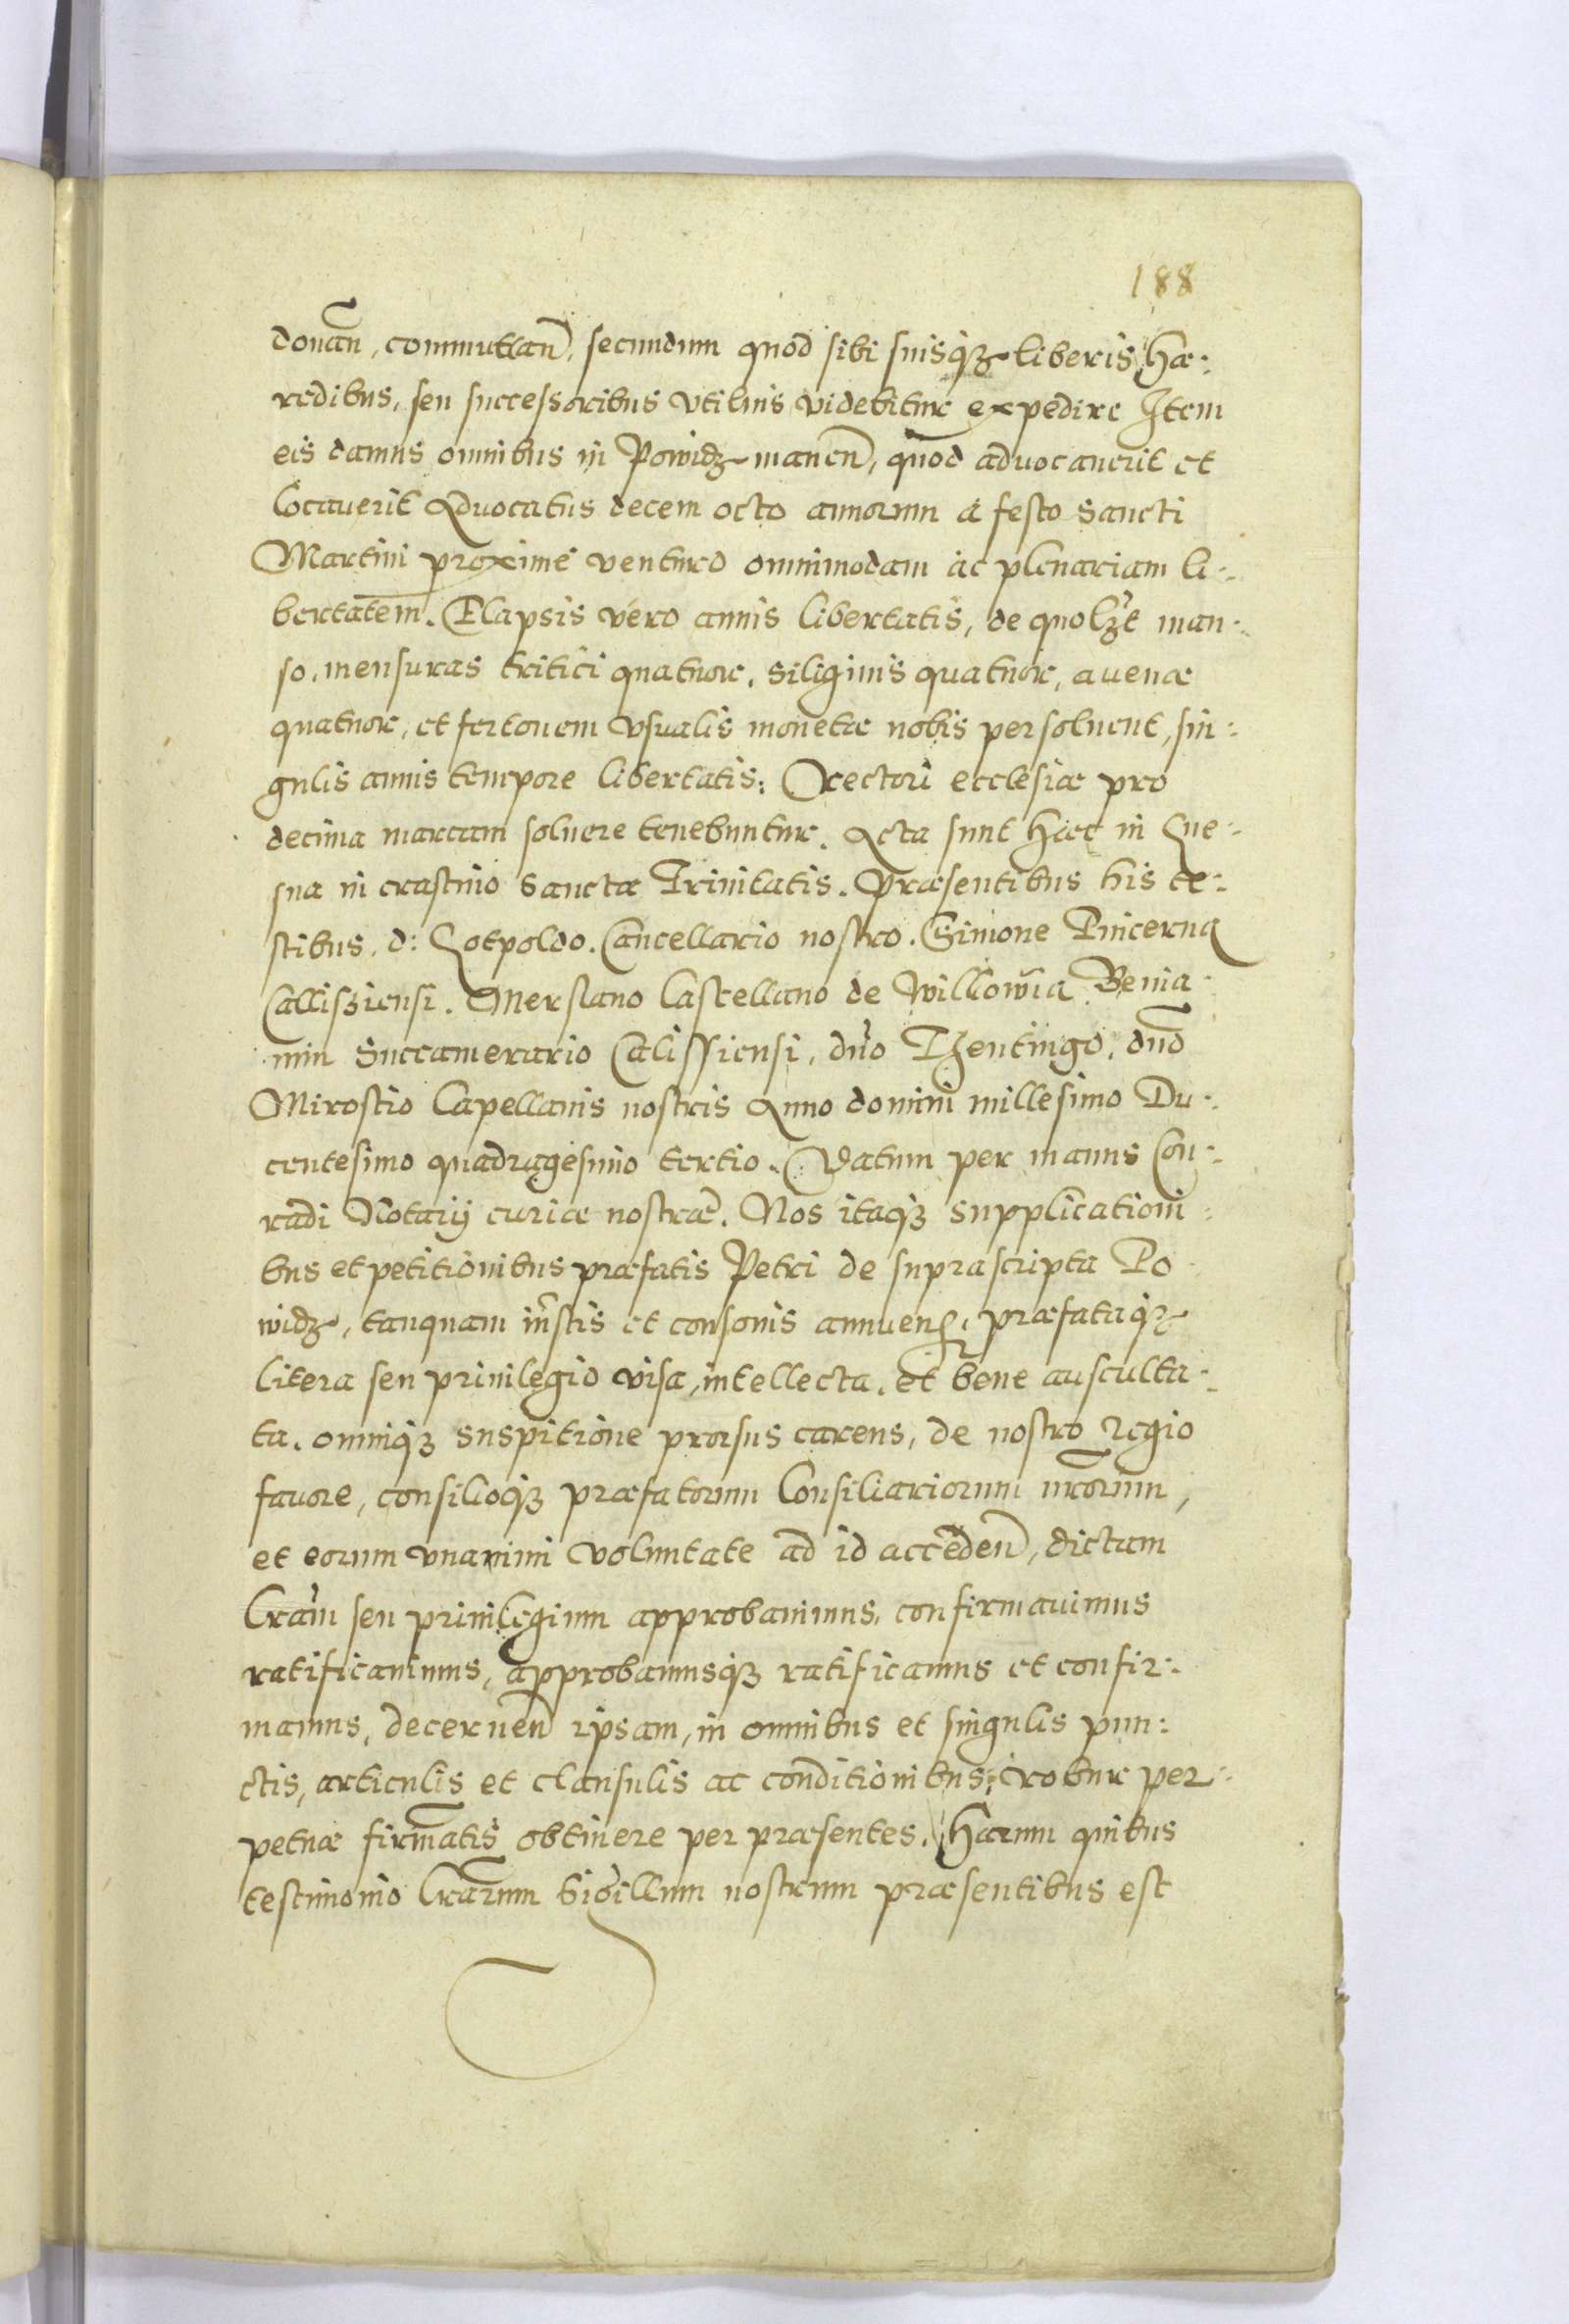 188
donan̄, commutan̄, secundum quod sibi suisq₃ liberis Hæ:
redibus, seu successoribus vtilius videbitur expedire Item
eis damus omnibus in Powidz manen̄, quod advocauerit et
locaverit Advocatus decem octo annorum à festo Sancti
Martini proximè venturo omnimodam ac plenariam li:
bertatem. Elapsis vero annis libertatis, de quolz̃t man:
so, mensuras tritici quatuor, siliginis quatuor, avenæ
quatuor, et fertonem vsualis monetæ nobis persoluent, sin:
gulis annis tempore libertatis: Rectori ecclesiæ pro
decima marcam soluere tenebuntur. Acta sunt Hæc in Gne:
sna in crastino Sanctæ Trinitatis. Præsentibus his te:
stibus, d: Gotpoldo. Cancellario nostro. Simone Pincerna
Callisziensi. Merslano Castellano de Willowia Benia:
min Succamerario Calissiensi, dno Tzentingo, dnō
Mirostio Capellanis nostris Anno domini millesimo Du:
centesimo quadragesimo tertio. Datum per manus Con:
radi Notarij curiæ nostræ. Nos itaq₃ supplicationi:
bus et petitionibus præfatis Petri de suprascripta Po
widz, tanquam iustis et consonis annuen̄, præfataq₃
litera seu priuilegio visa, intellecta, et bene ausculta:
ta, omniq₃ suspitione prorsus carens, de nostro regio
favore, consilioq₃ præfatorum Consiliariorum nrorum,
et eorum vnanimi voluntate ad id acceden̄, dictam
lram seu priuilegium approbauimus, confirmavimus
ratificauimus, approbamusq₃ ratificamus et confir:
mamus, decernen̄ ipsam, in omnibus et singulis pun:
ctis, articulis et clausulis ac conditionibus, robur per:
petuæ firmatis obtinere per præsentes. Harum quibus
testimonio lrarum Sigillum nostrum præsentibus est